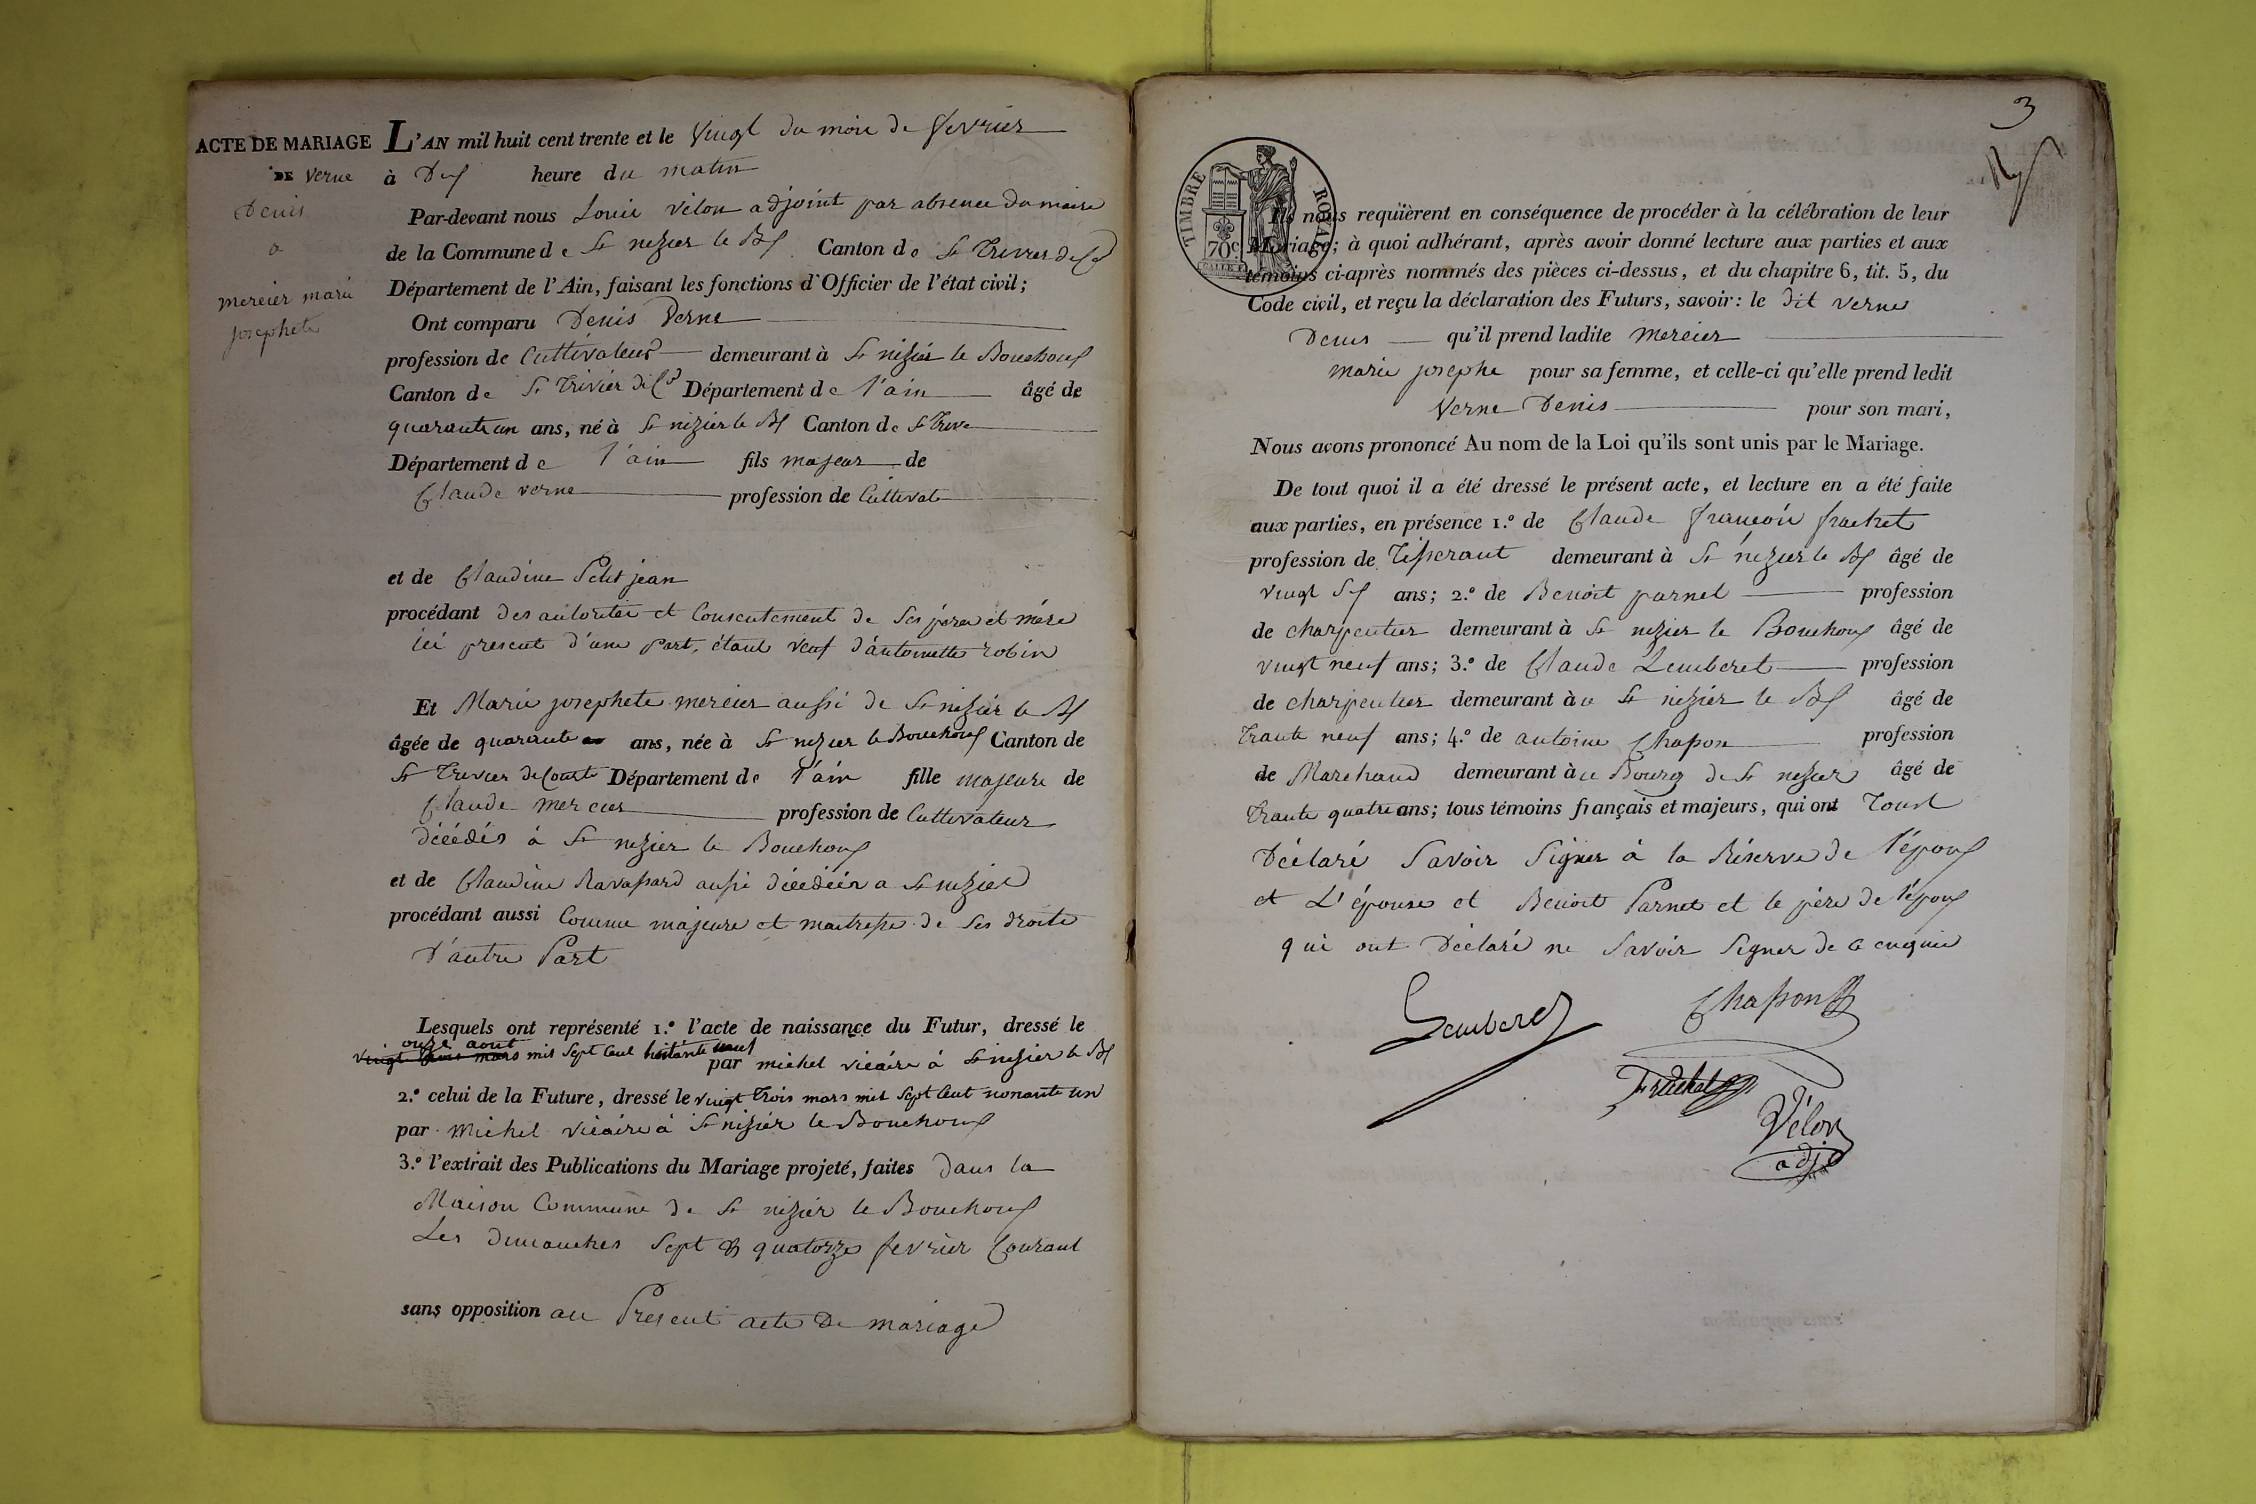 ACTE DE MARIAGE
DE Verne
Denis
a
mercier marie
josephete
L'AN mil huit cent trente et le vingt du mois de fevrier
à Dix heure du matin
Par-devant nous Louis vélon adjoint par absence du maire
de la Commune de St nizier le Bx Canton de St Trivier de Co
Département de l'Ain, faisant les fonctions d'Officier de l'état civil;
Ont comparu Denis Verne
profession de Cultivateur demeurant à St nizier le Bouchoux
Canton de St Trivier de Co Département de l'ain âgé de
quarante un ans, né à St nizier le Bx Canton de St Trive
Département de l'ain fils majeur de
Claude verne profession de Cultivat
et de Claudine Petit jean
procédant des autorité et Consentement de Ses père et mère
ici present d'une part, étant veuf d'antoinette robin
Et Marie josephete mercier aussi de St nizier le Bx
âgée de quarante ans, née à St nizier le Bouchoux Canton de
St Trivier de Courte Département de l'ain fille majeure de
Claude mercier profession de Cultivateur
décédés à St nizier le Bouchoux
et de Claudine Ravassard aussi décédée a St nizier
procédant aussi Comme majeure et maitresse de Ses droits
D'autre Part
Lesquels ont représenté 1.º l'acte de naissance du Futur, dressé le
onze aout
vingt trois mars mil Sept Cent huitante neuf par michel vicaire à St nizier le Bx
2.º celui de la Future, dressé le vingt trois mars mil Sept Cent nonante un
par Michel vicaire à St nizier le Bouchoux
3.º l'extrait des Publications du Mariage projeté, faites dans la
Maison Commune de St nizier le Bouchoux
Les dimanches Sept & quatorze fevrier Courant
sans opposition au Present acte de mariage
3
TIMBRE ROYAL
70c.
Ils nous requièrent en conséquence de procéder à la célébration de leur
Mariage; à quoi adhérant, après avoir donné lecture aux parties et aux
témoins ci-après nommés des pièces ci-dessus, et du chapitre 6, tit. 5, du
Code civil, et reçu la déclaration des Futurs, savoir: le dit verne
Denis qu'il prend ladite mercier
marie josephe pour sa femme, et celle-ci qu'elle prend ledit
Verne Denis pour son mari,
Nous avons prononcé Au nom de la Loi qu'ils sont unis par le Mariage.
De tout quoi il a été dressé le présent acte, et lecture en a été faite
aux parties, en présence 1.º de Claude françois frachet
profession de Tisserant demeurant à St nizier le Bx âgé de
vingt Six ans; 2.º de Benoit parnet profession
de charpentier demeurant à St nizier le Bouchoux âgé de
vingt neuf ans; 3.º de Claude Lemberet profession
de charpentier demeurant àu St nizier le Bx âgé de
Trante neuf ans; 4.º de antoine Chapon profession
de Marchand demeurant àu Bourg de St nizier âgé de
trante quatre ans; tous témoins français et majeurs, qui ont Tous
Déclaré Savoir Signer à la Réserve de l'époux
et L'épouse et Benoit Parnet et le père de l'époux
qui ont Déclaré ne Savoir Signer de ce enquis
Lemberet
Chapon
Frachet
Vélon
adj